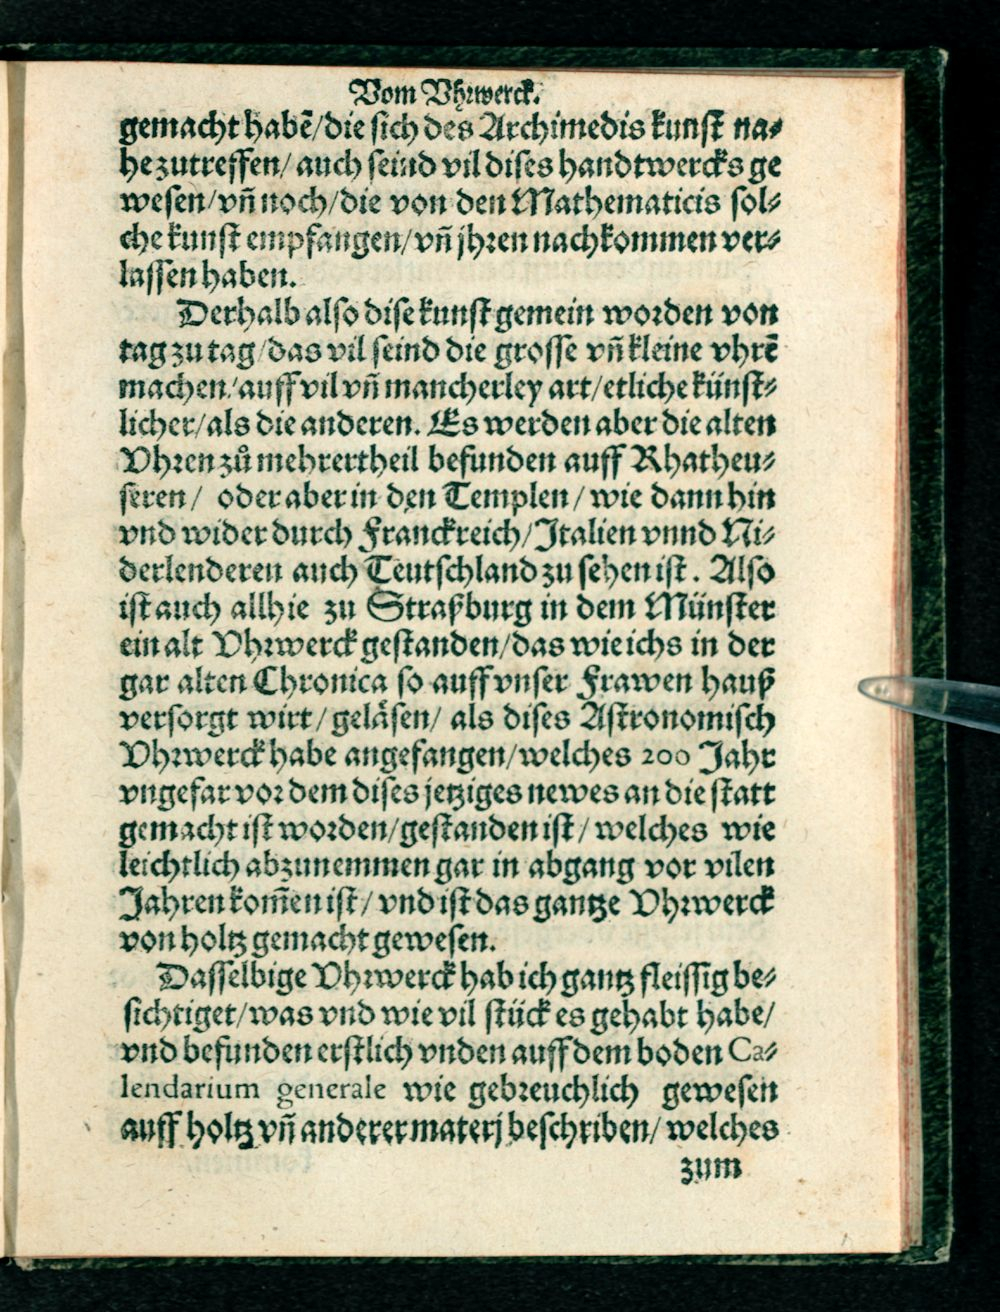 Vom Vhrwerck.
gemacht habē/die sich des Archimedis kunst na⸗
he zutreffen/ auch seind vil dises handtwercks ge
wesen/vñ noch/die von den Mathematicis sol⸗
che kunst empfangen/vñ jhren nachkommen ver⸗
lassen haben.
Derhalb also dise kunst gemein worden von
tag zu tag/das vil seind die grosse vñ kleine vhrē
machen/auff vil vñ mancherley art/etliche künst⸗
licher/als die anderen. Es werden aber die alten
Vhren zů mehrertheil befunden auff Rhatheu⸗
seren/ oder aber in den Templen/wie dann hin
vnd wider durch Franckreich/Italien vnnd Ni⸗
derlenderen auch Teutschland zu sehen ist. Also
ist auch allhie zu Straßburg in dem Münster
ein alt Vhrwerck gestanden/das wie ichs in der
gar alten Chronica so auff vnser Frawen hauß
versorgt wirt/geläsen/ als dises Astronomisch
Vhrwerck habe angefangen/welches 200 Jahr
vngefar vor dem dises jetziges newes an die statt
gemacht ist worden/gestanden ist/welches wie
leichtlich abzunemmen gar in abgang vor vilen
Jahren kom̄en ist/ vnd ist das gantze Vhrwerck
von holtz gemacht gewesen.
Dasselbige Vhrwerck hab ich gantz fleissig be⸗
sichtiget/was vnd wie vil stück es gehabt habe/
vnd befunden erstlich vnden auff dem boden Ca⸗
lendarium generale wie gebreuchlich gewesen
auff holtz vñ anderer materj beschriben/welches
zum